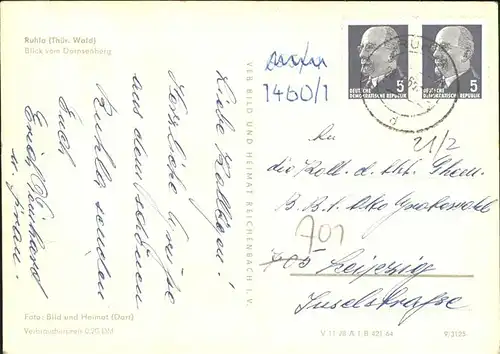 Ruhla (Thür. Wald)
Blick vom Dornsenberg
Liebe Kollegen!
Herzliche Grüße
aus dem schönen
Ruhla senden
Euch
Erich
u. Frau.
Foto: Bild und Heimat (Dorl)
Verbraucherpreis 0,20 DM
VEB BILD UND HEIMAT REICHENBACH I. V.
1460/1
5
DEUTSCHE
DEMOKRATISCHE REPUBLIK
5
DEUTSCHE
DEMOKRATISCHE REPUBLIK
21/2
An
die Koll. d. Abt. Chem.
701
703 Leipzig
Inselstraße
V 11 28 A 1 B 421 64
9/3125